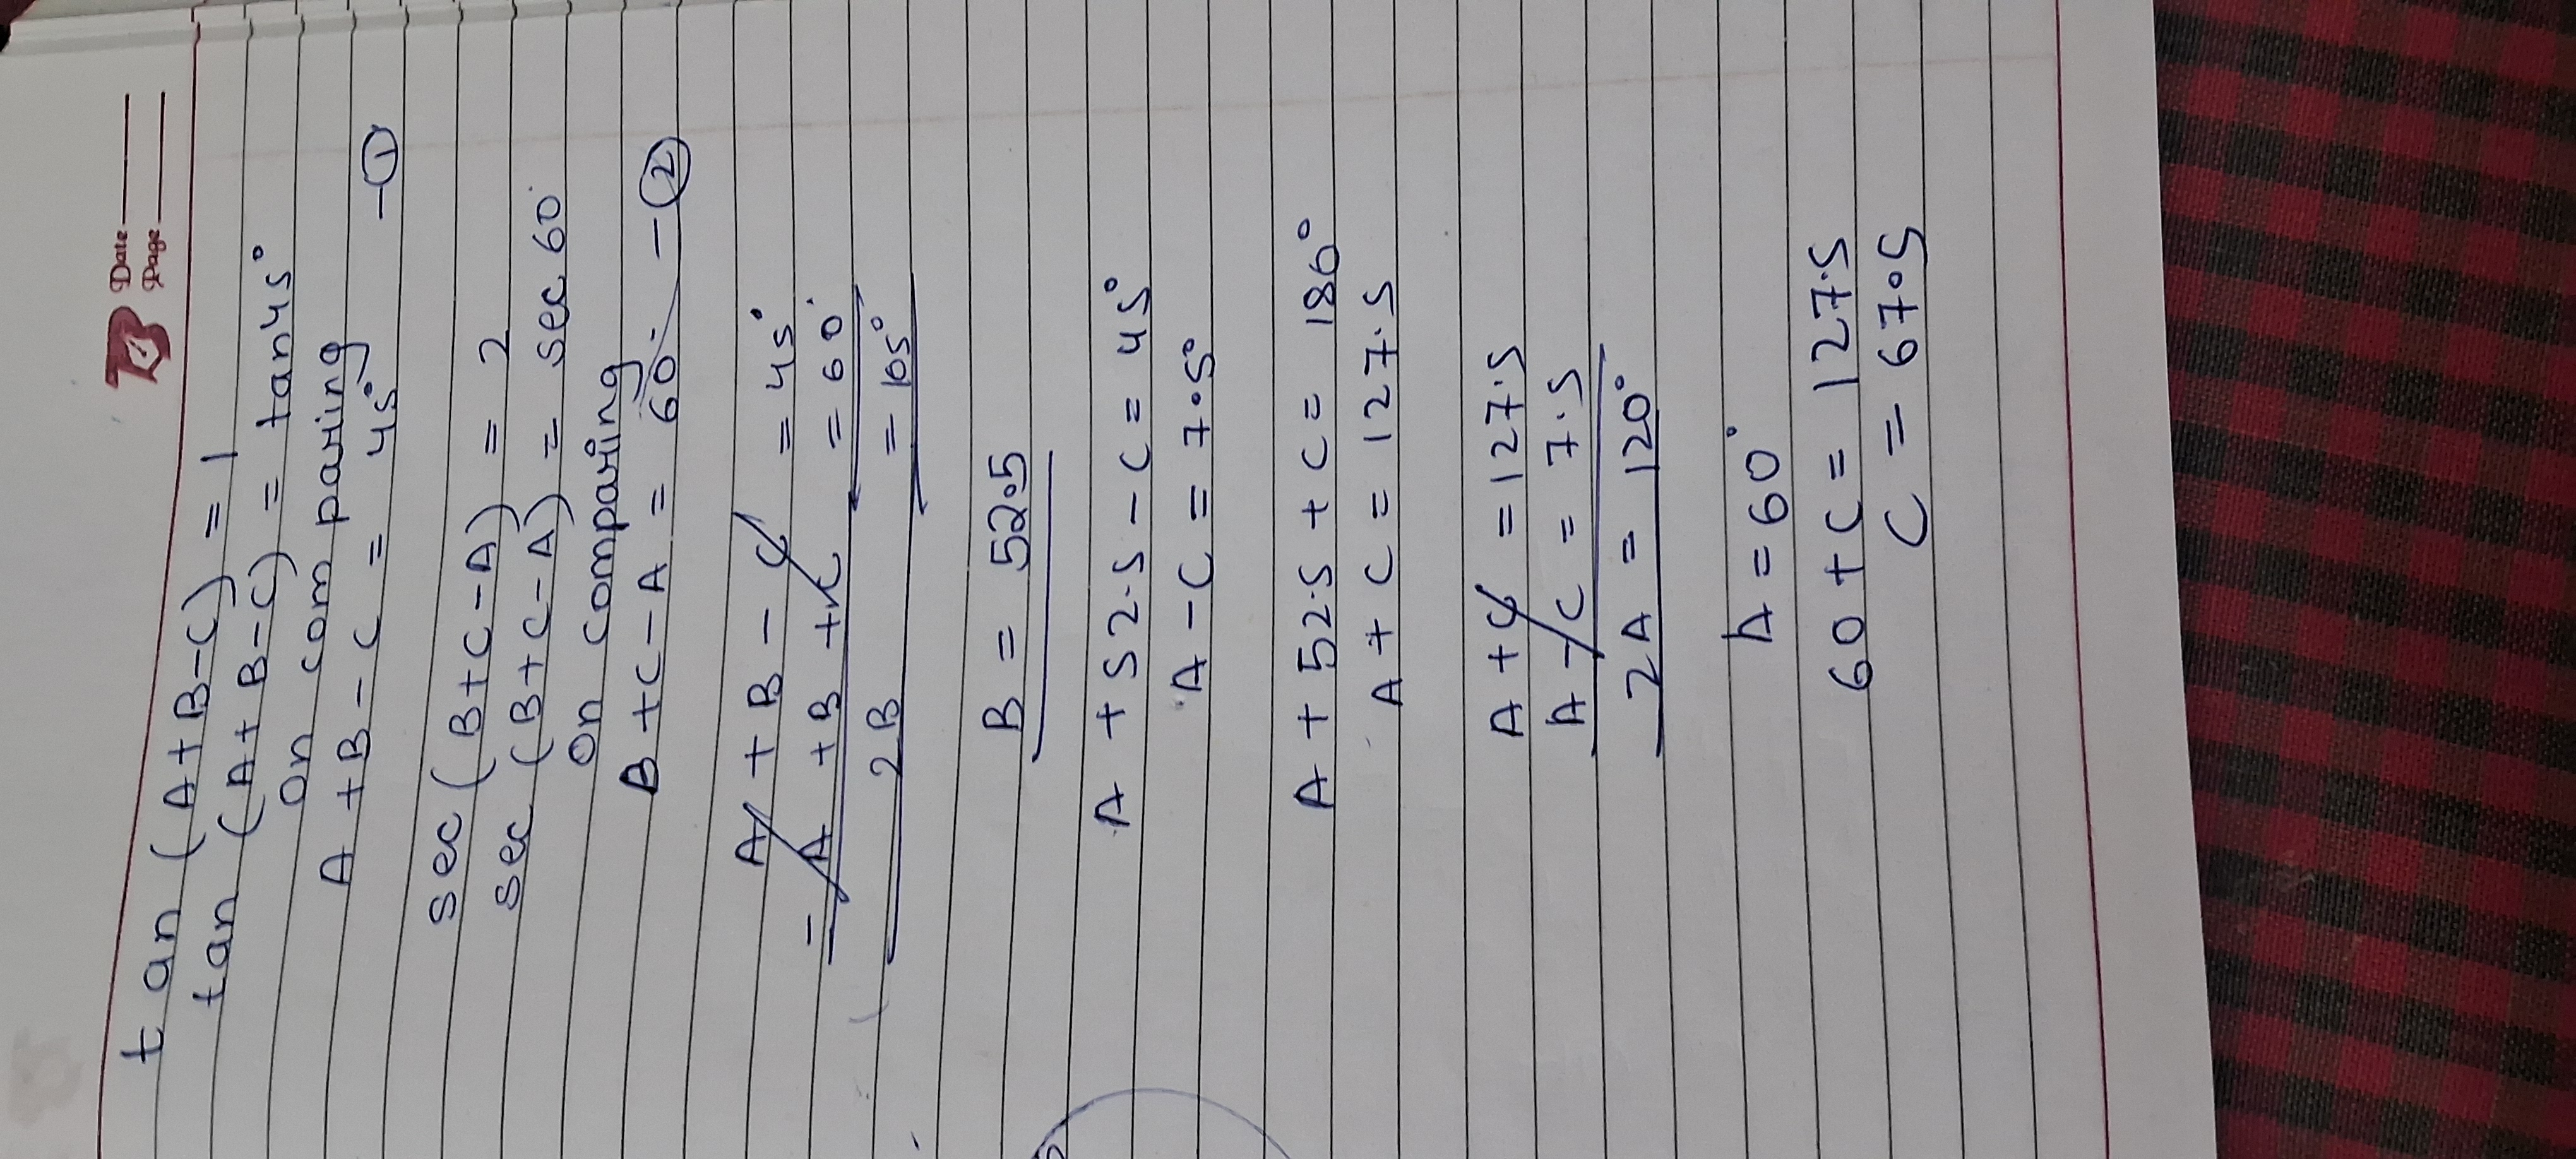 Date
Page
tan (A+B-C) = 1
tan (A+B-C) = tan45°
On comparing
A+B-C = 45° -①
sec (B+C-A) = 2
sec (B+C-A) = sec 60°
On comparing
B+C-A = 60° -②
A+B-C = 45°
-A+B+C = 60°
2B = 105°
B = 52.5
A + 52.5 - C = 45°
A-C = 7.5°
A + 52.5 + C = 180°
A+C = 127.5
A+C = 127.5
A-C = 7.5
2A = 120°
A = 60°
60+C = 127.5
C = 67.5